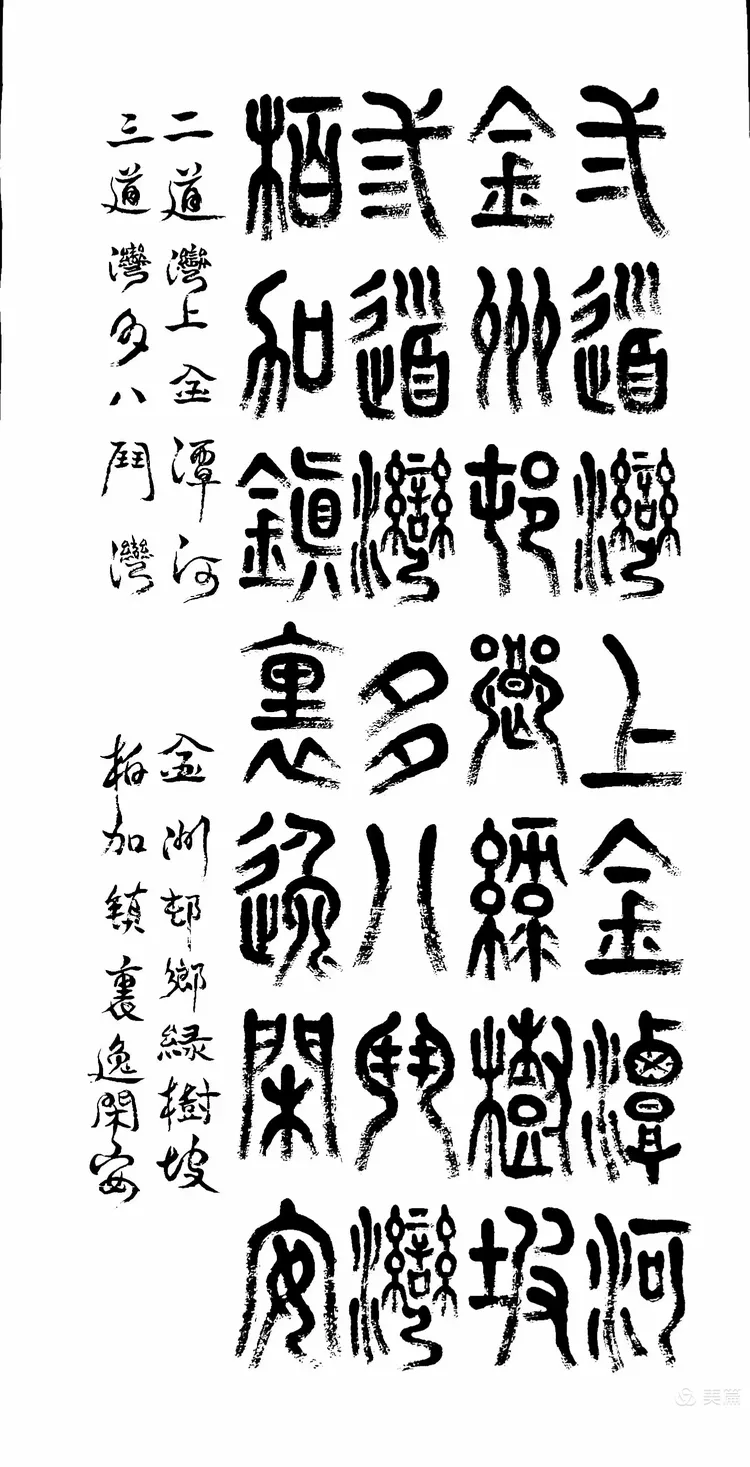 弍道灣上金潭河
金州邨鄉緑樹坡
弎道灣多八鬥灣
栢和鎮裏逸閑安
二道灣上金潭河 金洲邨鄉緑樹坡
三道灣多八鬥灣 柏加鎮裏逸閑安
美篇